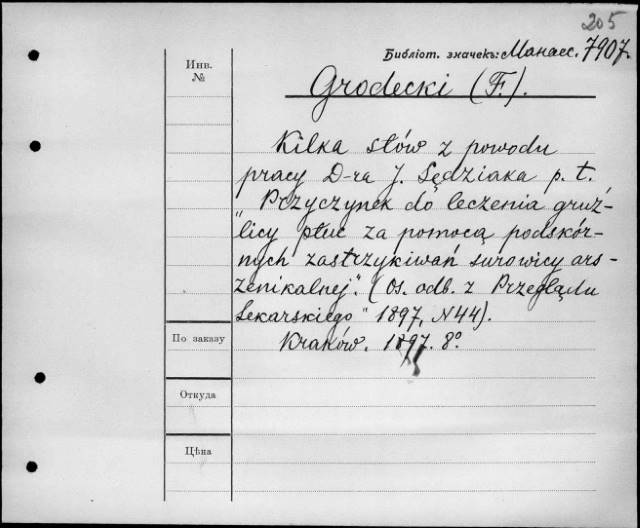 205
Библіот. значекъ: Манасс. 7907.
Инв. №
Grodecki (F.).
Kilka słów z powodu
pracy D-ra J. Sędziaka p. t.
"Przyczynek do leczenia gruź-
licy płuc za pomocą podskór-
nych zastrzykiwań surowicy ars-
zenikalnej". (Os. odb. z Przeglądu
Lekarskiego" 1897, N44).
По заказу
Kraków. 1897. 8º.
Откуда
Цѣна